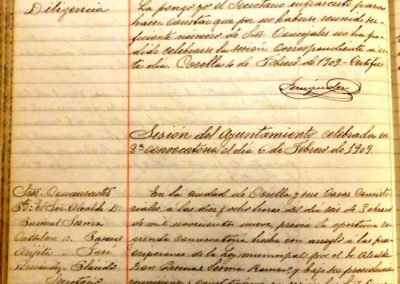 Diligencia
La pongo yo el Secretario infrascrito para
hacer constar que por no haberse reunido su-
ficiente número de Sres. Concejales no ha po-
dido celebrarse la sesión correspondiente a es-
te día. Corella 4 de Febrero de 1909. Certifico
Sesión del Ayuntamiento celebrada en
2ª convocatoria el día 6 de Febrero de 1909.
Sres. Concurrentes
Pte. El Sor Alcalde D.
Pascual Sesma
Catalán D. Manuel
Arijita - Jose
Fernandez - Plácido
Secretario
En la ciudad de Corella y sus Casas Consisto-
riales a las diez y ocho horas del día seis de Febrero
de mil novecientos nueve, previa la oportuna se-
gunda convocatoria hecha con arreglo a las pres-
cripciones de la Ley municipal por el Sr. Alcalde
Don Pascual Sesma Romeo y bajo su presidencia